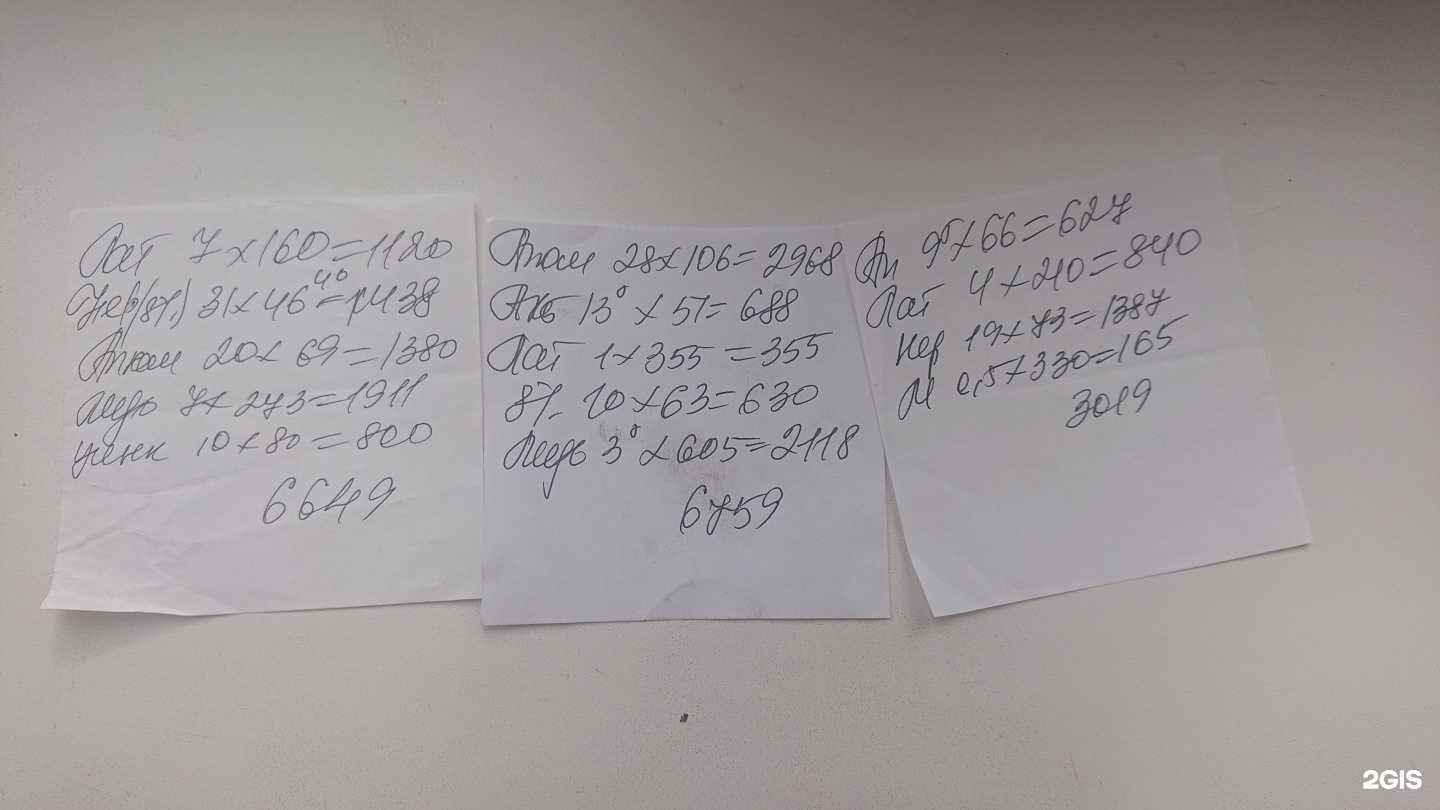 Лат 7 x 160 = 1120
Нер(8%) 31 x 46⁴⁰ = 1438
Алюм 20 x 69 = 1380
Медь 7 x 273 = 1911
цинк 10 x 80 = 800
6649
Алюм 28 x 106 = 2968
Акб 13⁵ x 51 = 688
Лат 1 x 355 = 355
8%. 10 x 63 = 630
Медь 3⁵ x 605 = 2118
6759
Ал 9⁵ x 66 = 627
Лат 4 x 210 = 840
Нер 19 x 73 = 1387
М 0,5 x 330 = 165
3019
2GIS